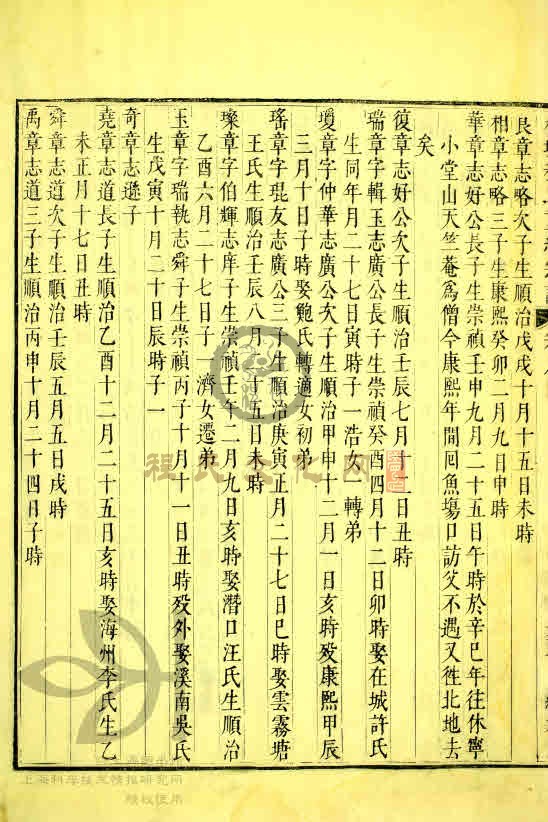 艮章志略次子生順治戊戌十月十五日未時
相章志略三子生康熙癸卯二月九日申時
華章志好公長子生崇禎壬申九月二十五日午時於辛巳年往休寧
小堂山天竺菴爲僧今康熙年間囘魚塲口訪父不遇又徃北地去
矣
復章志好公次子生順治壬辰七月十二日丑時
瑞章字輯玉志廣公長子生崇禎癸酉四月十二日卯時娶在城許氏
生同年月二十七日寅時子一浩女一轉弟
瓊章字仲華志廣公次子生順治甲申十二月一日亥時殁康熙甲辰
三月十日子時娶鮑氏轉適女初弟
瑤章字琨友志廣公三子生順治庚寅正月二十七日巳時娶雲霧塘
王氏生順治壬辰八月二十五日未時
璨章字伯輝志庠子生崇禎壬午二月九日亥時娶潛口汪氏生順治
乙酉六月二十七日子一濟女遷弟
玉章字瑞執志舜子生崇禎丙子十月十一日丑時殁外娶溪南吳氏
生戊寅十月二十日辰時子一
奇章志遜子
堯章志道長子生順治乙酉十二月二十五日亥時娶海州李氏生乙
未正月十七日丑時
舜章志道次子生順治壬辰五月五日戌時
禹章志道三子生順治丙申十月二十四日子時
程氏文化网
上海科学技术情报研究所
授权使用